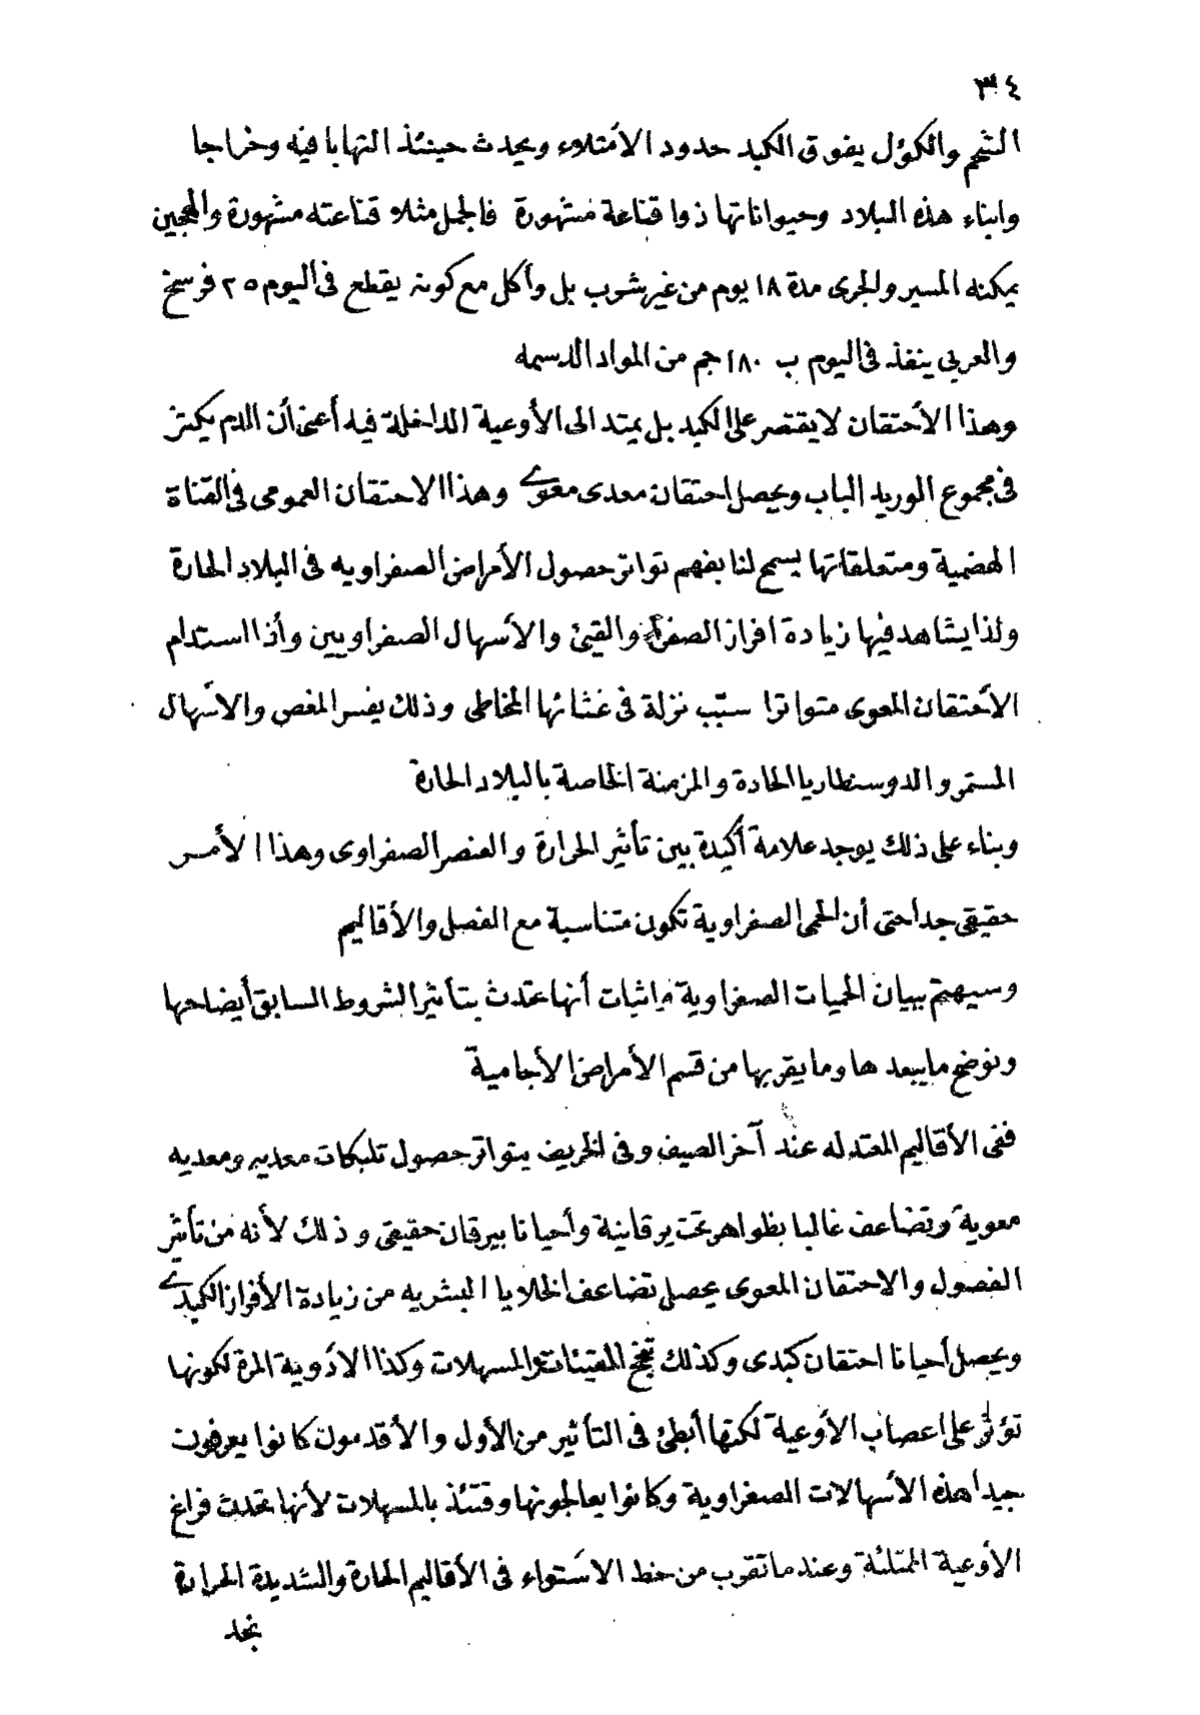 ٣٤
الشحم والكؤل يفوق الكبد حدود الأمتلاء ويحدث حينئذ التهابا فيه وخراجا
وابناء هذه البلاد وحيواناتها ذوا قناعة مشهورة فالجمل مثلا قناعته مشهورة والهجين
يمكنه المسير والجرى مدة ١٨ يوم من غير شوب بل وأكل مع كونه يقطع فى اليوم ٢٥ فرسخ
والعربي ينفذ فى اليوم ب ١٨٠ جم من المواد الدسمه
وهذا الأحتقان لا يقتصر على الكبد بل يمتد الى الأوعية الداخلة فيه أعنى أن الدم يكتنز
فى مجموع الوريد الباب ويحصل احتقان معدى معوى وهذا الاحتقان العمومى فى القناة
الهضمية ومتعلقاتها يسمح لنا بفهم تواتر حصول الأمراض الصفراويه فى البلاد الحارة
ولذا يشاهد فيها زيادة افراز الصفراء والقيئ والأسهال الصفراويين وأذا استدام
الأحتقان المعوى متواترا سبّب نزلة فى غشائها المخاطى وذلك يفسر المغص والاسهال
المستمر والدوسنطاريا الحادة والمزمنة الخاصة بالبلاد الحارة
وبناء على ذلك يوجد علامة أكيدة بين تأثير الحرارة والعنصر الصفراوى وهذا الأمر
حقيقى جدا حتى أن الحمى الصفراوية تكون متناسبة مع الفصل والأقاليم
وسيهتم ببيان الحميات الصفراوية واثبات أنها تحدث بتأثير الشروط السابق أيضاحها
ونوضح ما يبعدها وما يقربها من قسم الأمراض الأجامية
ففى الأقاليم المعتدله عند آخر الصيف وفى الخريف يتواتر حصول تلبكات معديه ومعديه
معوية وتضاعف غالبا بظواهر تحت يرقانية وأحيانا بيرقان حقيقى وذلك لأنه من تأثير
الفصول والاحتقان المعوى يحصل تضاعف الخلايا البشريه من زيادة الأفراز الكبدى
ويحصل أحيانا احتقان كبدى وكذلك تنجح المقيئات والمسهلات وكذا الادوية المرة لكونها
تؤثر على اعصاب الأوعية لكنها أبطئ فى التأثير من الأول والأقدمون كانوا يعرفون
جيدا هذه الأسهالات الصفراوية وكانوا يعالجونها وقتئذ بالمسهلات لأنها تحدث فراغ
الأوعية الممتلئة وعندما تقرب من خط الاستواء فى الأقاليم الحارة والشديدة الحرارة
نجد